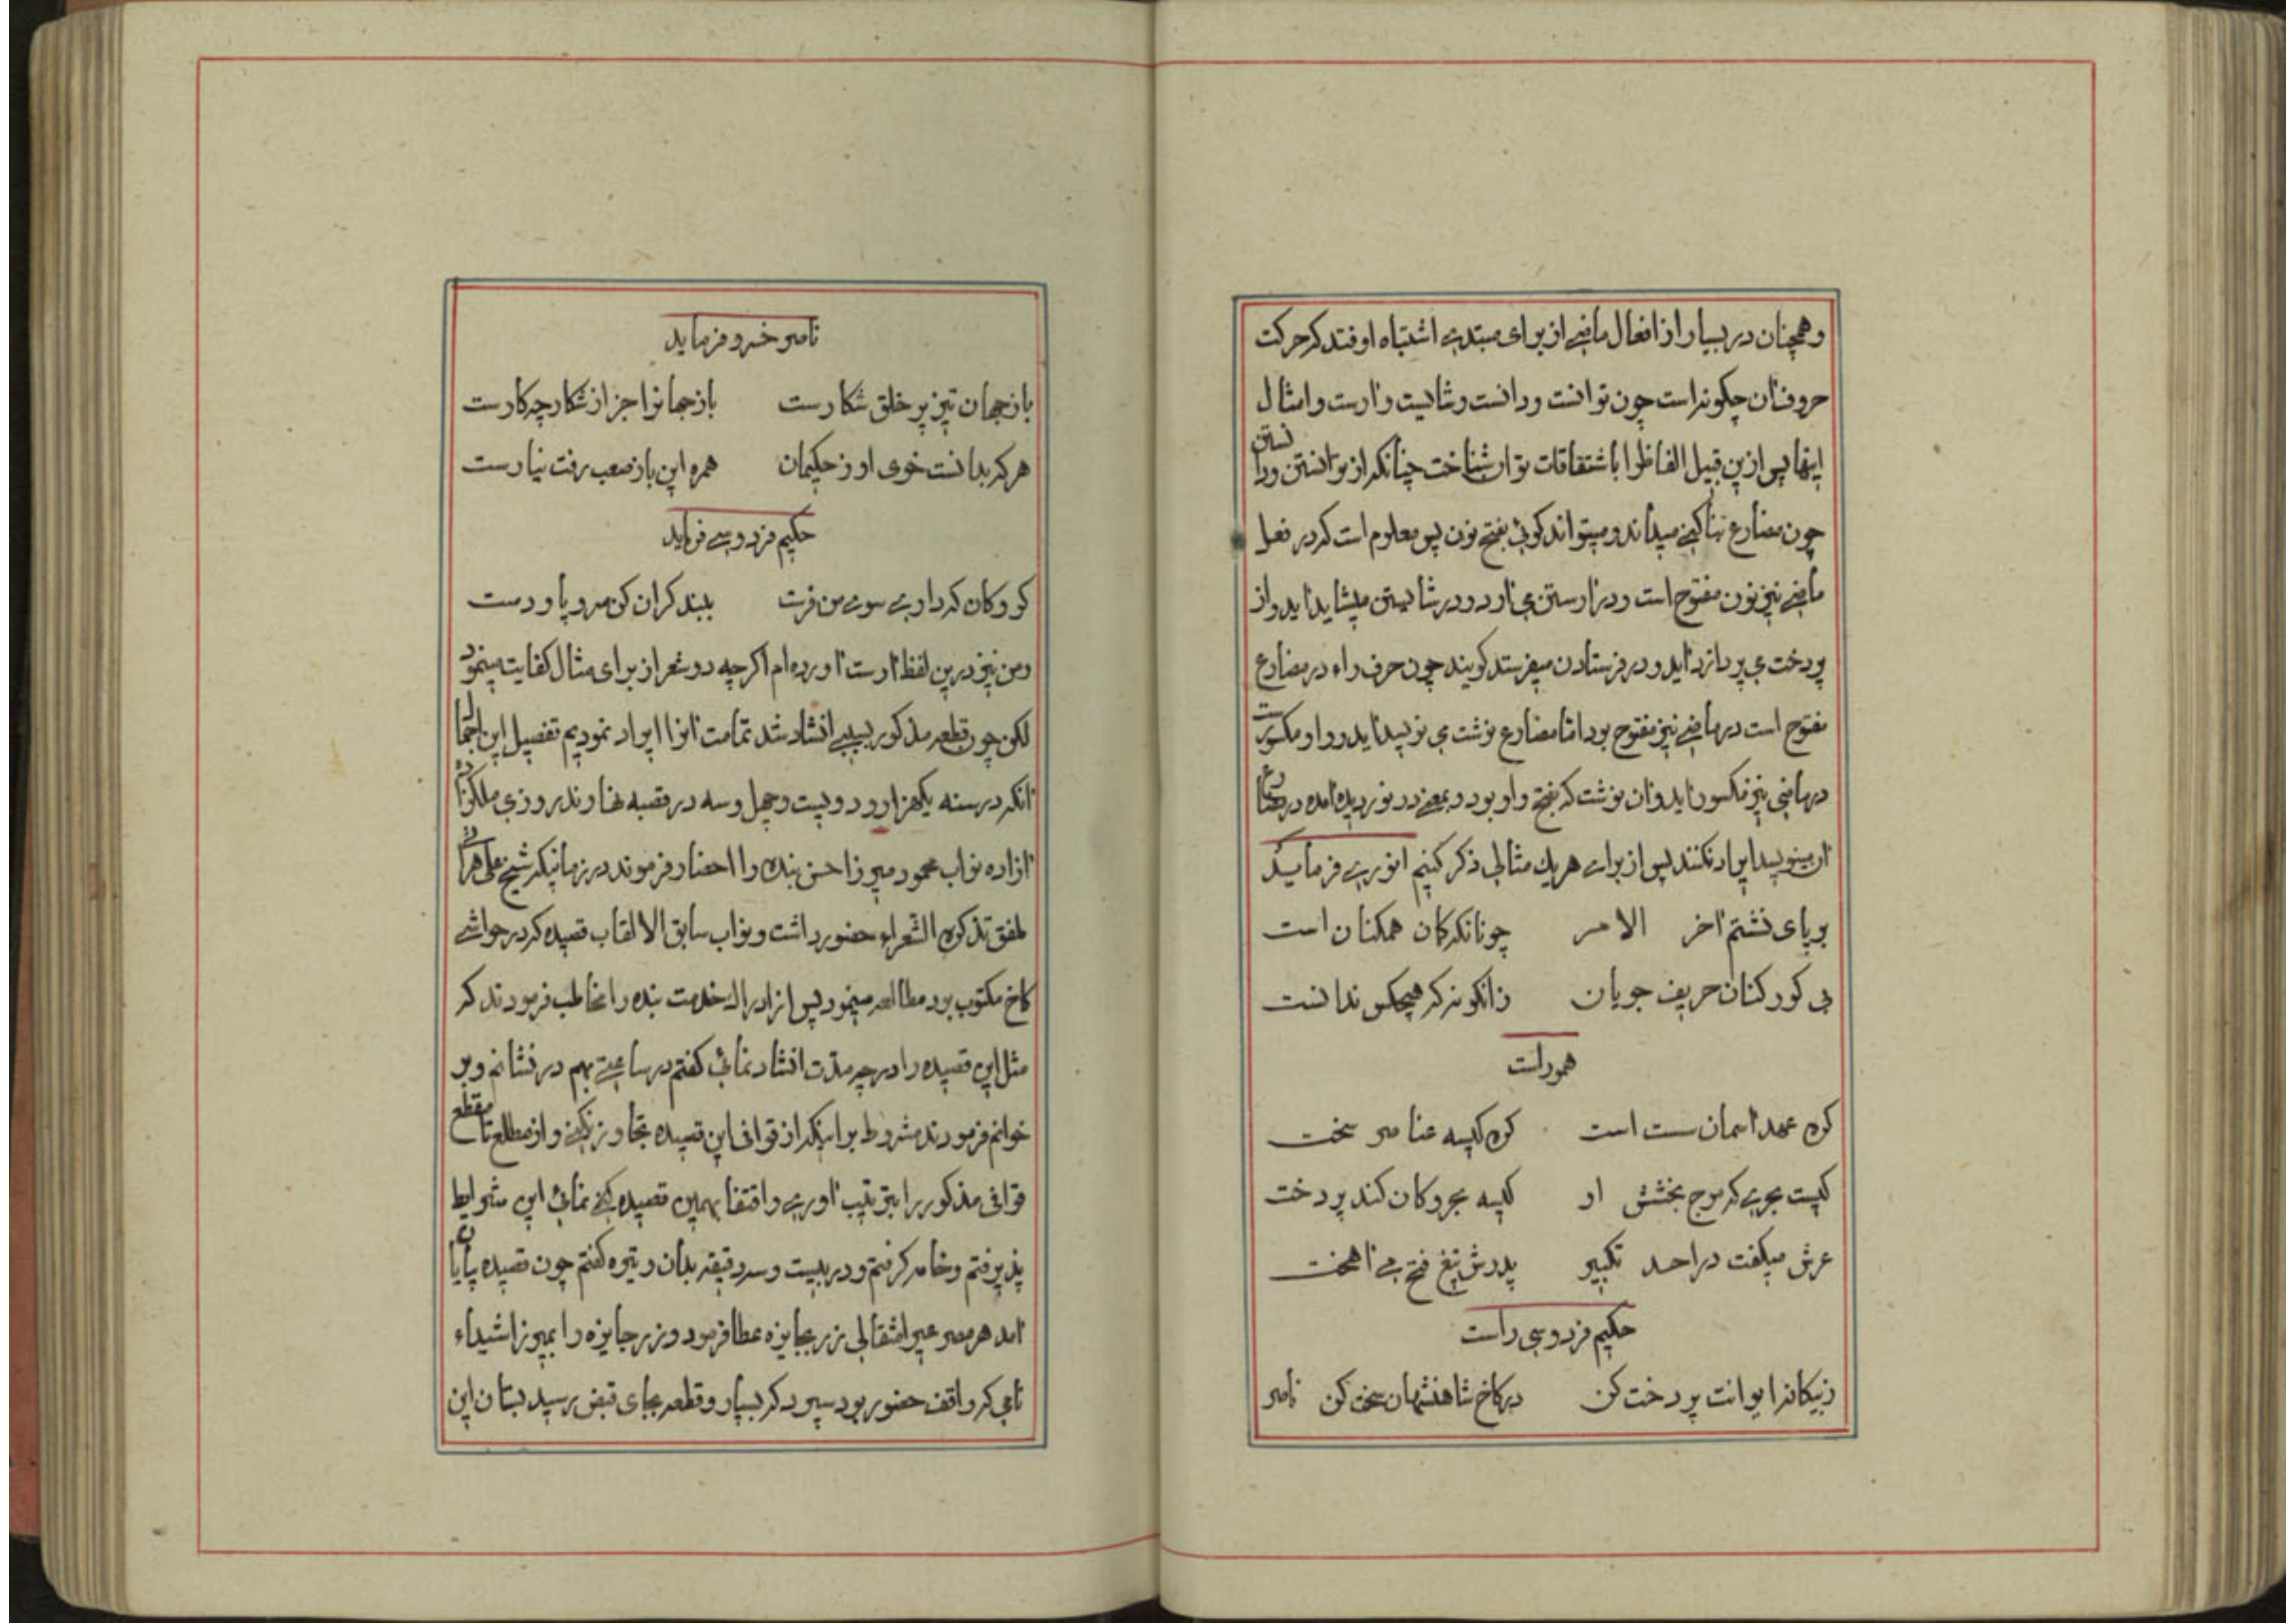 و همچنان در بسیار از افعال ماضی از برای مبتدی اشتباه اوفتد که حرکت
حروفشان چگونه است چون توانست و دانست و شایست و آرست و امثال
اینها پس ازین قبیل الفاظ را باشتقاقات توان شناخت چنانکه از توانستن و دانستن
چون مضارع بنا کنی میداند و میتواند گوئی بفتح نون پس معلوم است که در فعل
ماضی نیز نون مفتوح است و در آرستن می آرد و در شایستن میشاید آید و از
پردخت می پردازد آید و در فرستادن میفرستد گویند چون حرف راء در مضارع
مفتوح است در ماضی نیز مفتوح بود اما مضارع نوشت می نویسد آید و واو مکسور است
در ماضی نیز مکسور آید و آن نوشت که بفتح واو بود و بمعنی در نوردیده آمده در مضارع
آن مینویسد ایراد نکنند پس از برای هر یك مثالی ذکر کنیم انوری فرماید
بر پای نشتم آخر الامر چونانکه کان همکنان است
می کور کنان حریف جویان زانگونه که هیچکس ندانست
هموراست
کره عهد آسمان سست است کره کیسه عناصر سخت
کیست بحری که موج بخشش او کیسه بحر و کان کند پردخت
عرش میگفت در احد تکبیر پدرش تیغ فتح می آهخت
حکیم فردوسی راست
ز بیگانه ایوانت پردخت کن در کاخ شاهنشهان سخت کن ناصر
ناصر خسرو فرماید
باز جهان تیز پر خلق شکارست باز جهانرا جز از شکار چه کارست
هر که بدانست خوی او ز حکیمان همره این باز صعب رفت نیارست
حکیم فردوسی فرماید
گروگان که داری سوی من فرست ببند گران کن سر و پا و دست
و من نیز درین لفظ آرست آورده ام اگرچه دو شعر از برای مثال کفایت مینمود
لکن چون قطعه مذکور بسببی انشاد شد تمامت آنرا ایراد نمودیم تفصیل این اجمال
آنکه در سنه یکهزار و دویست و چهل و سه در قصبه نهاوند روزی ملکزاده
آزاده نواب محمود میرزا حسن بنده را احضار فرموند در زمانیکه شیخ علی هراتی
ملفق تذکره الشعراء حضور داشت و نواب سابق الالقاب قصیده که در حواشی
کاخ مکتوب بود مطالعه مینمود پس از ادراك خدمت بنده را مخاطب فرمودند که
مثل این قصیده را در چه مدت انشاد نمائی گفتم در ساعتی بهم در نشانم و بر
خوانم فرمودند مشروط بر اینکه از قوافی این قصیده تجاوز نکنی و از مطلع تا مقطع
قوافی مذکور را بترتیب آوری و اقتفا بهمین قصیده کنی نمائی این شرایط
پذیرفتم و خامه گرفتم و در بیست و سه دقیقه بدان وتیره گفتم چون قصیده پایان
آمد هر مصرعی را مثقالی زر بجایزه عطا فرمود و زر جایزه را بمیرزا شیداء
نامی که واقف حضور بود سپرد که بسپار و قطعه بجای قبض رسید بستان این